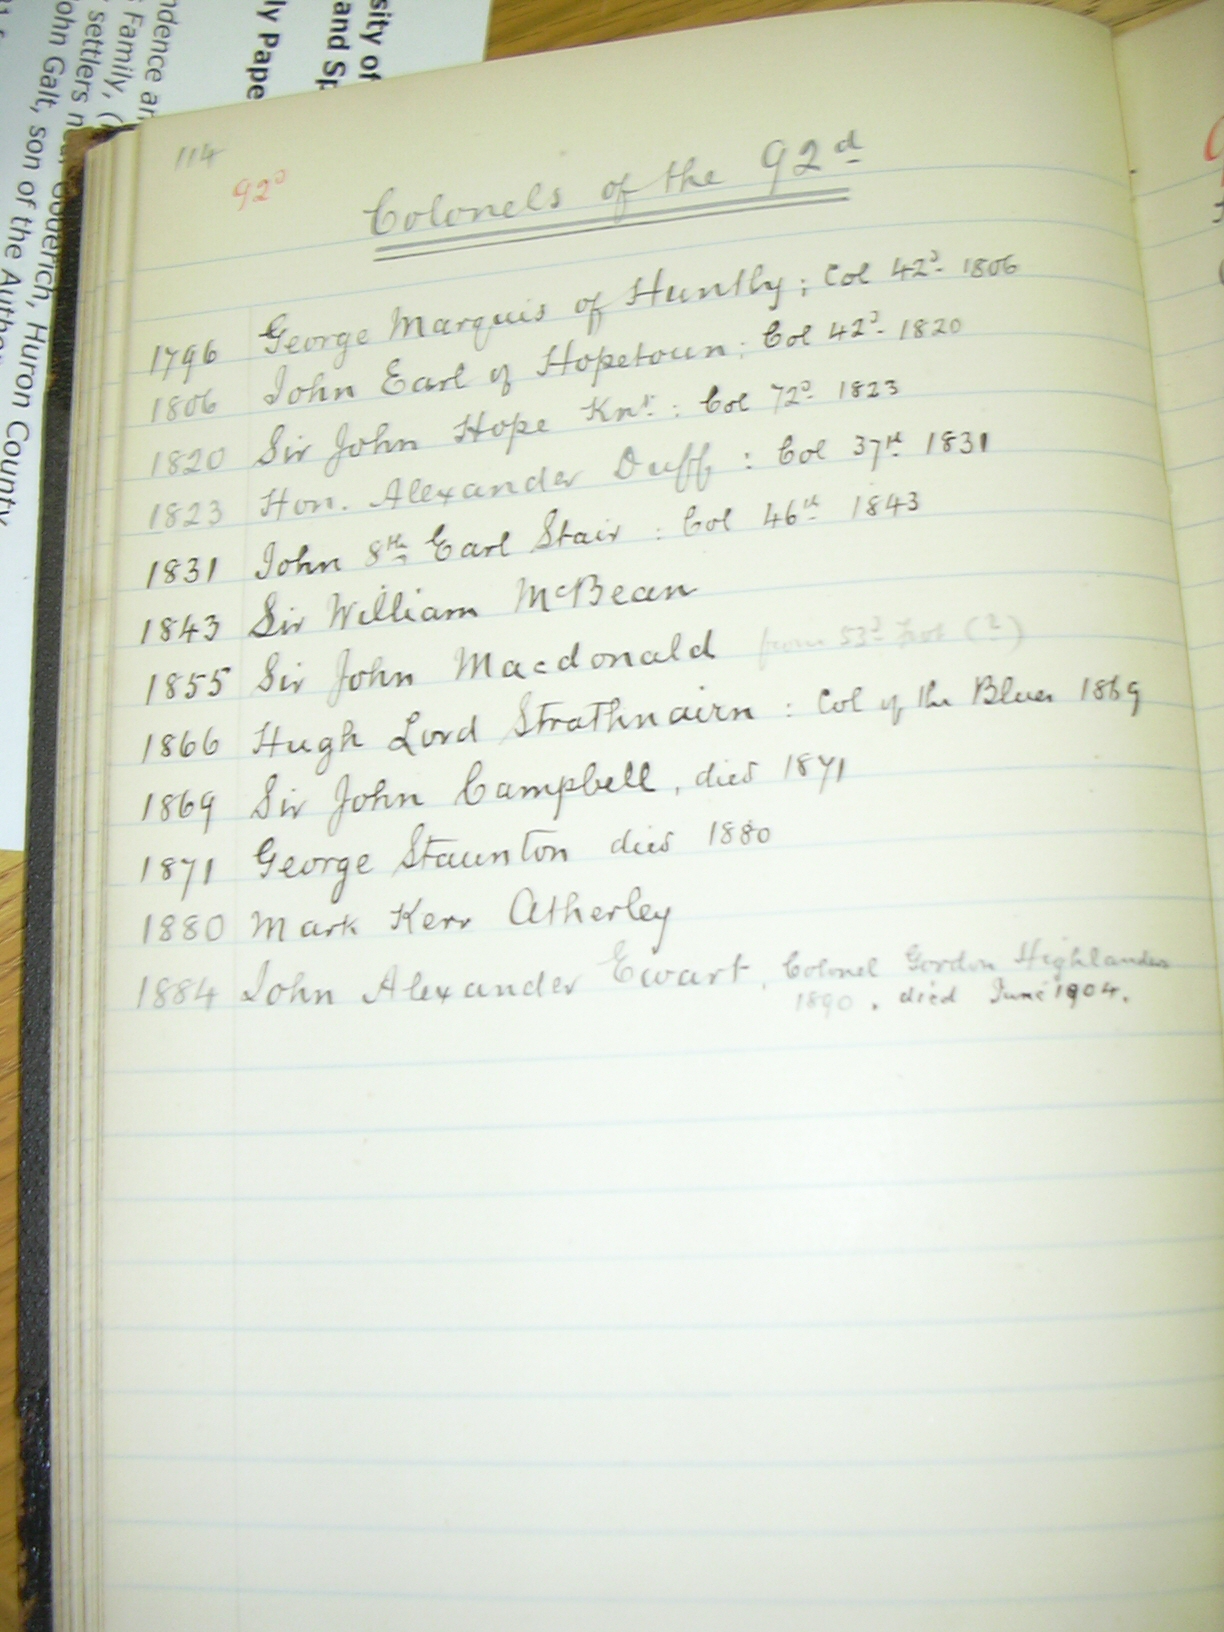 sity of
and Sp
ly Pape
ndence an
s Family, (
settlers near Goderich, Huron County
ohn Galt, son of the Author
114
92d
Colonels of the 92d
1796 George Marquis of Huntly ; Col 42d 1806
1806 John Earl of Hopetoun ; Col 42d 1820
1820 Sir John Hope Knt : Col 72d 1823
1823 Hon. Alexander Duff : Col 37th 1831
1831 John 8th Earl Stair : Col 46th 1843
1843 Sir William McBean
1855 Sir John Macdonald from 53d Foot (?)
1866 Hugh Lord Strathnairn : Col of the Blues 1869
1869 Sir John Campbell, died 1871
1871 George Staunton died 1880
1880 Mark Kerr Atherley
1884 John Alexander Ewart, Colonel Gordon Highlanders
1890. died June 1904.